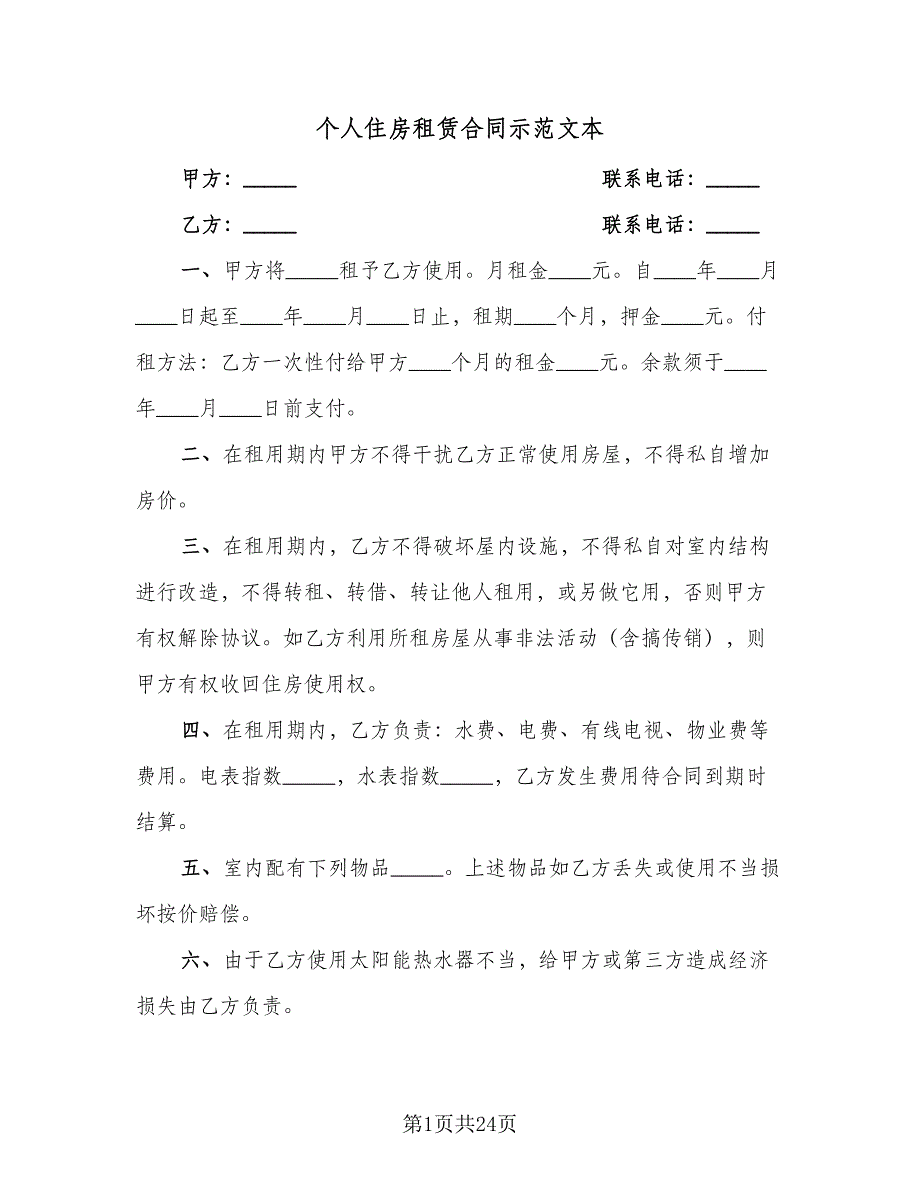 个人住房租赁合同示范文本
甲方：_____ 联系电话：_____
乙方：_____ 联系电话：_____
一、甲方将_____租予乙方使用。月租金____元。自____年____月
____日起至____年____月____日止，租期____个月，押金____元。付
租方法：乙方一次性付给甲方____个月的租金____元。余款须于____
年____月____日前支付。
二、在租用期内甲方不得干扰乙方正常使用房屋，不得私自增加
房价。
三、在租用期内，乙方不得破坏屋内设施，不得私自对室内结构
进行改造，不得转租、转借、转让他人租用，或另做它用，否则甲方
有权解除协议。如乙方利用所租房屋从事非法活动（含搞传销），则
甲方有权收回住房使用权。
四、在租用期内，乙方负责：水费、电费、有线电视、物业费等
费用。电表指数_____，水表指数_____，乙方发生费用待合同到期时
结算。
五、室内配有下列物品_____。上述物品如乙方丢失或使用不当损
坏按价赔偿。
六、由于乙方使用太阳能热水器不当，给甲方或第三方造成经济
损失由乙方负责。
第1页共24页